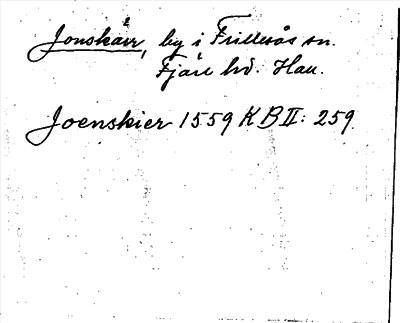 Jonskär, by i Frillesås sn.
Fjäre hd. Hall.
Joenskier 1559 KB II: 259